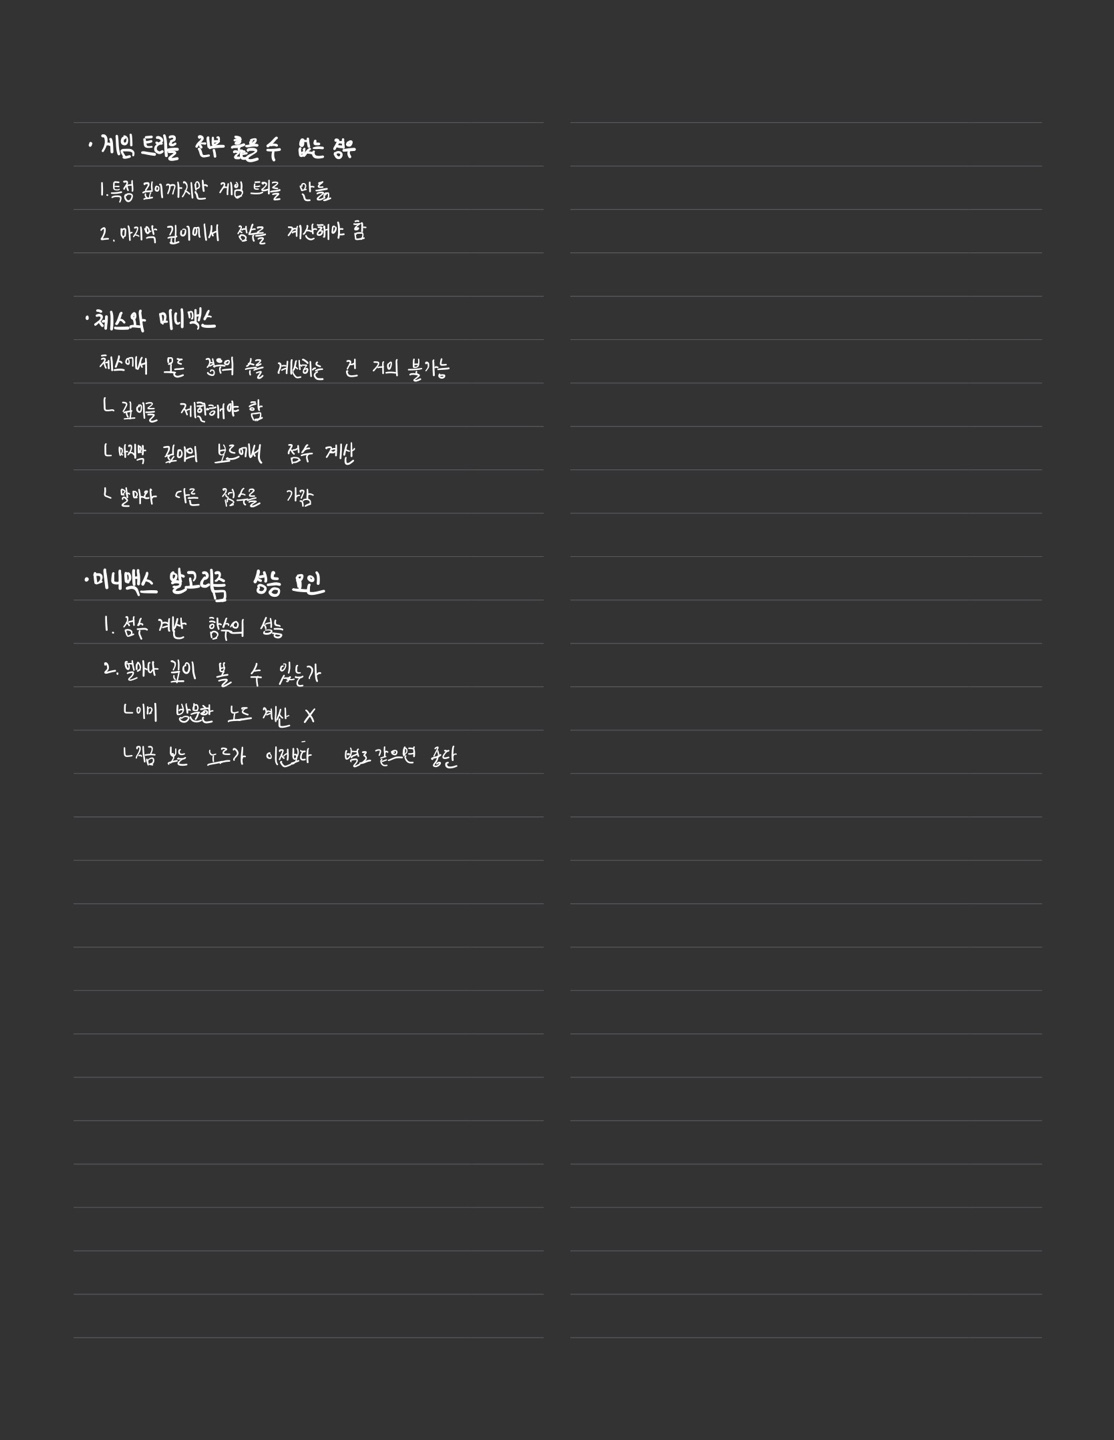 · 게임 트리를 전부 훑을 수 없는 경우
1. 특정 깊이까지만 게임 트리를 만듦
2. 마지막 깊이에서 점수를 계산해야 함
· 체스와 미니맥스
체스에서 모든 경우의 수를 계산하는 건 거의 불가능
└ 깊이를 제한해야 함
└ 마지막 깊이의 보드에서 점수 계산
└ 말마다 다른 점수를 가감
· 미니맥스 알고리즘 성능 요인
1. 점수 계산 함수의 성능
2. 얼마나 깊이 볼 수 있는가
└ 이미 방문한 노드 계산 X
└ 지금 보는 노드가 이전보다 별로 같으면 중단